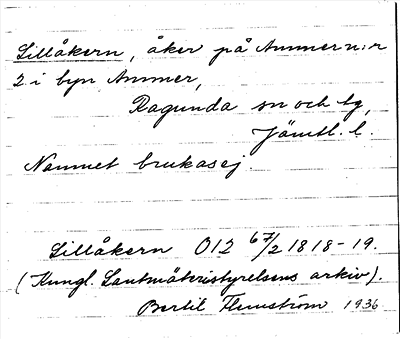 Lillåkern, åker på Ammer n:r
2 i byn Ammer,
Ragunda sn och tg,
Jämtl. l.
Namnet brukas ej.
Lillåkern O12 67/2 1818-19.
(Kungl. Lantmäteristyrelsens arkiv).
Bertil Flemström 1936